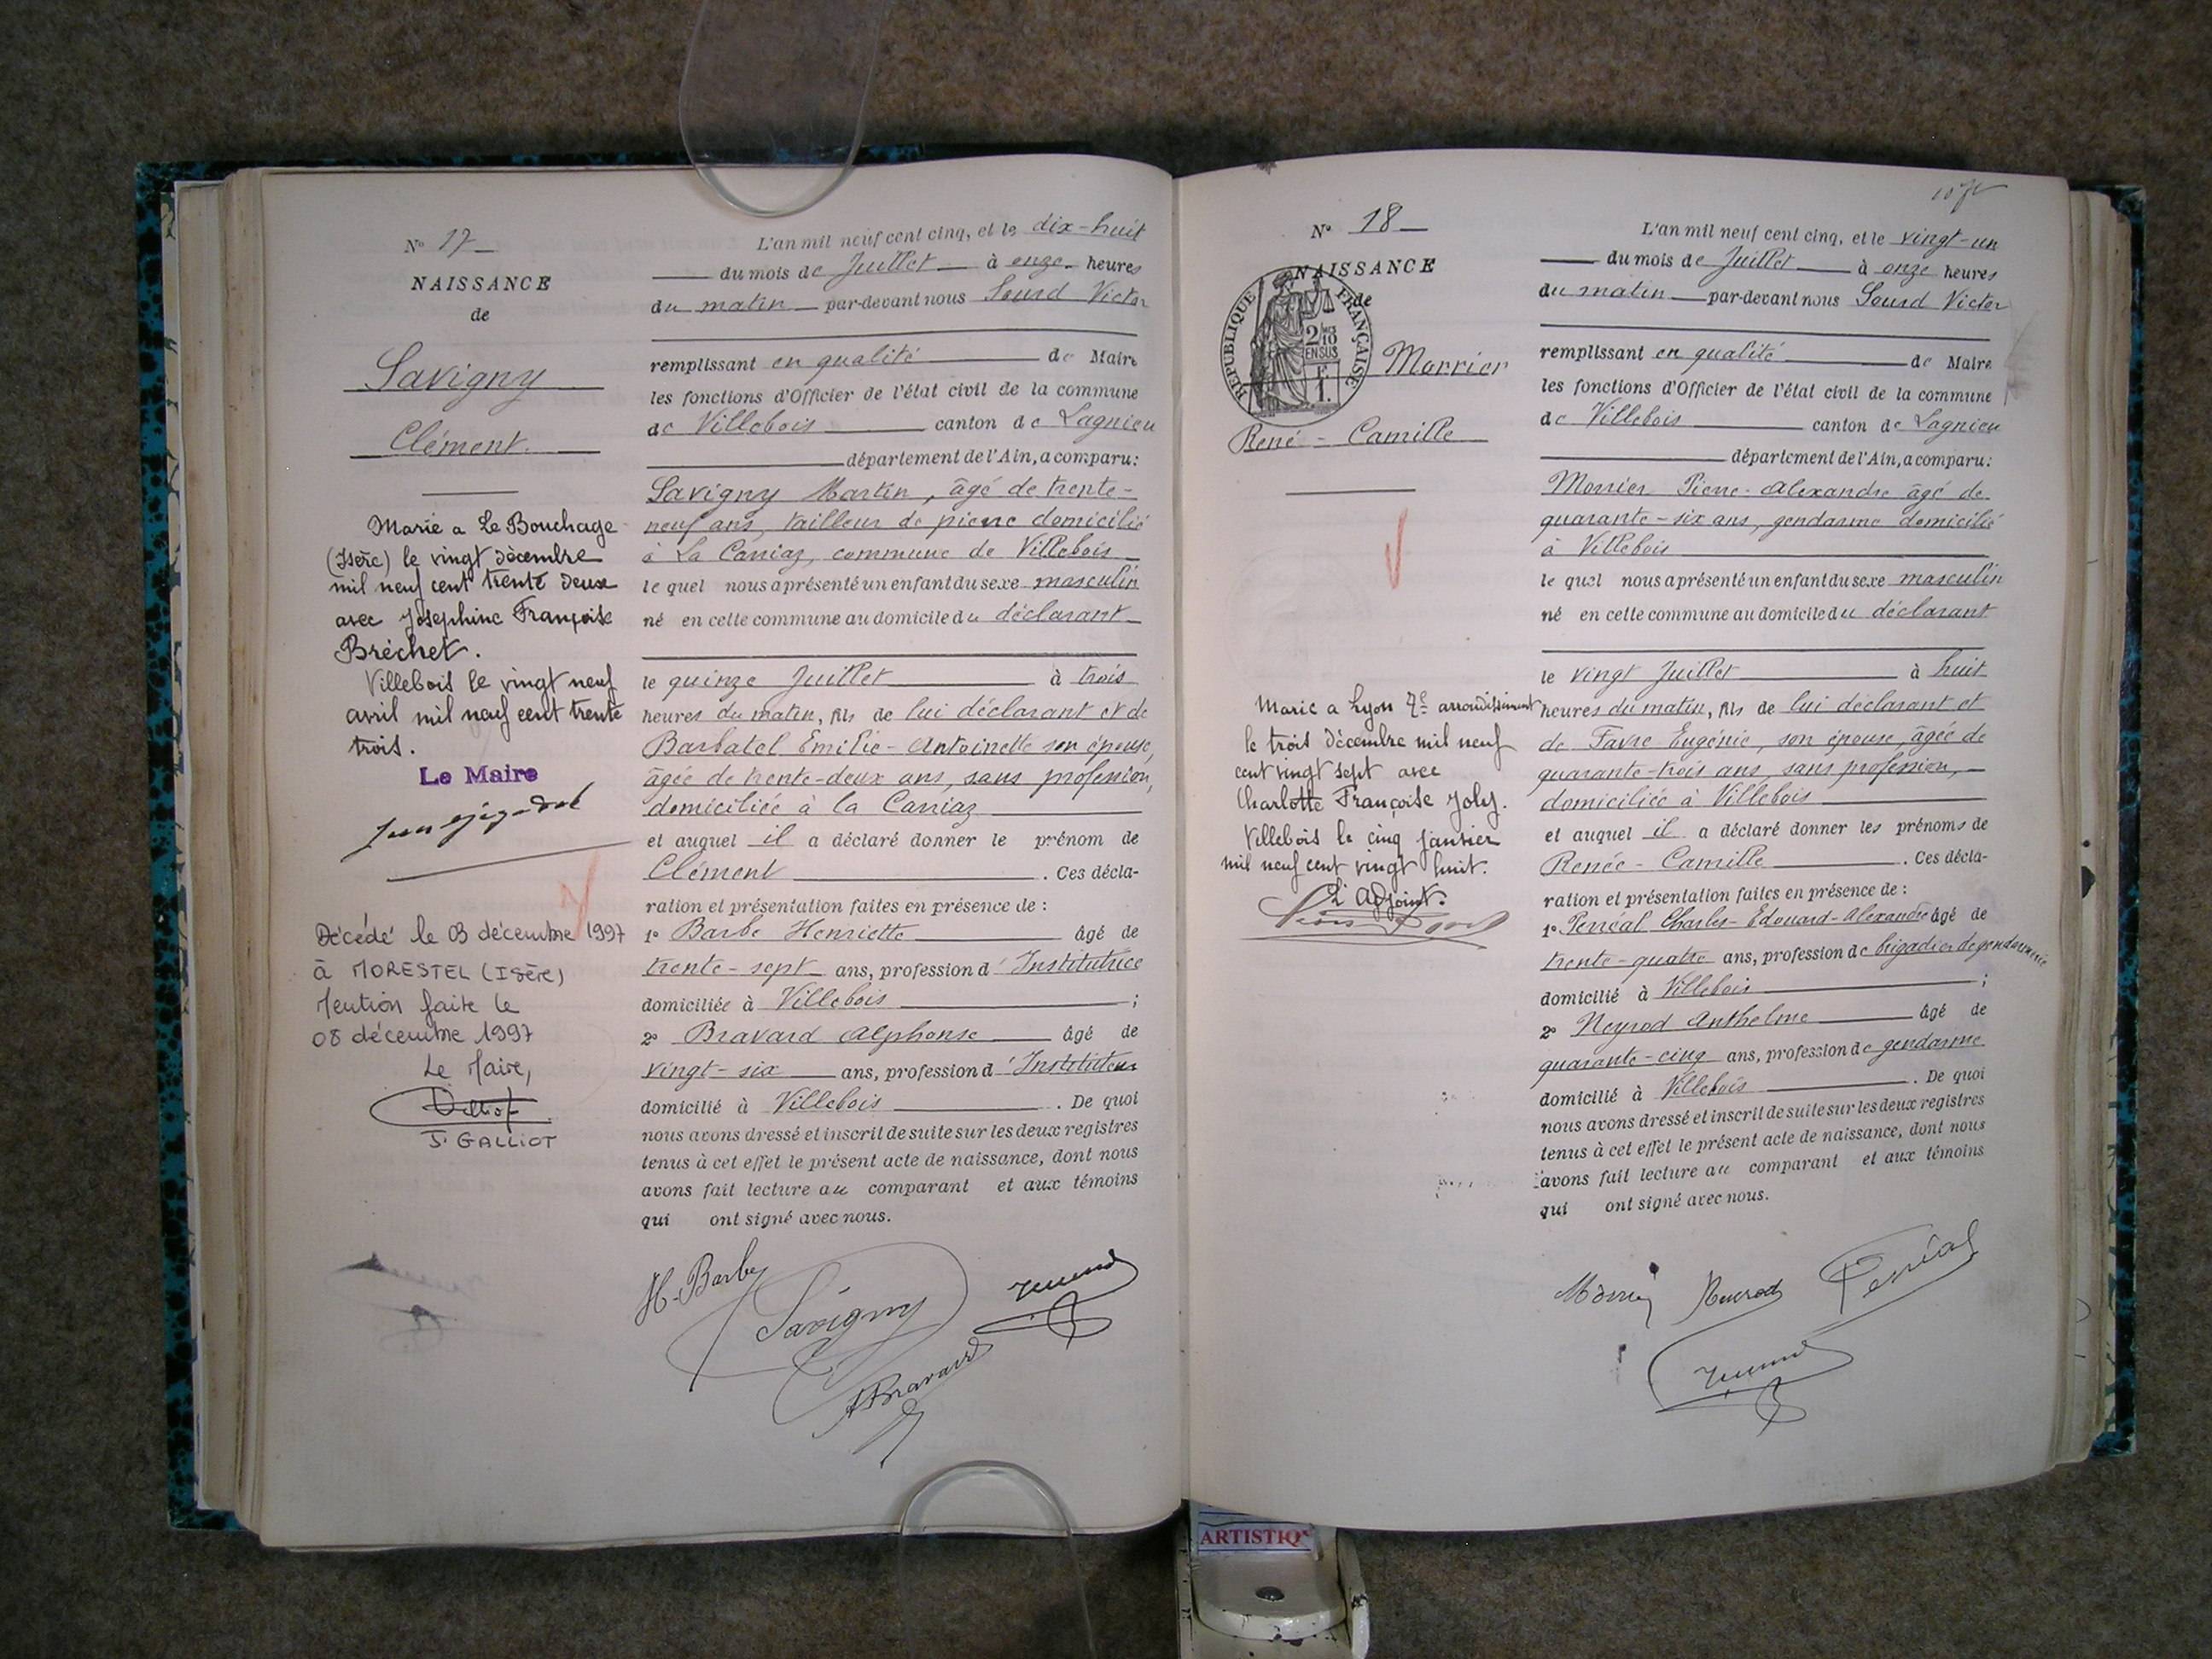 N° 17
NAISSANCE
de
Savigny
Clément
Marié a Le Bouchage
(Isère) le vingt décembre
mil neuf cent trente deux
avec Joséphine Françoise
Bréchet.
Villebois le vingt neuf
avril mil neuf cent trente
trois.
Le Maire
Décédé le 03 décembre 1997
à MORESTEL (ISÈRE)
Mention faite le
08 décembre 1997
Le Maire,
J. GALLIOT
L'an mil neuf cent cinq, et le dix-huit
du mois de Juillet à onze heures
du matin par-devant nous Sourd Victor
remplissant en qualité de Maire
les fonctions d'Officier de l'état civil de la commune
de Villebois canton de Lagnieu
département de l'Ain, a comparu:
Savigny Martin, âgé de trente-
neuf ans, tailleur de pierre domicilié
à La Carriaz, commune de Villebois
le quel nous a présenté un enfant du sexe masculin
né en cette commune au domicile du déclarant
le quinze Juillet à trois
heures du matin, fils de lui déclarant et de
Barbatel Emilie-Antoinette son épouse,
âgée de trente-deux ans, sans profession,
domiciliée à la Carriaz
et auquel il a déclaré donner le prénom de
Clément . Ces décla-
ration et présentation faites en présence de :
1° Barbe Henriette âgé de
trente-sept ans, profession d'Institutrice
domiciliée à Villebois ;
2° Bravard Alphonse âgé de
vingt-six ans, profession d'Instituteur
domicilié à Villebois . De quoi
nous avons dressé et inscrit de suite sur les deux registres
tenus à cet effet le présent acte de naissance, dont nous
avons fait lecture au comparant et aux témoins
qui ont signé avec nous.
H. Barbe
Savigny
ABravard
N° 18
NAISSANCE
de
RÉPUBLIQUE FRANÇAISE
2/10
EN SUS
F
1.
Morrier
René-Camille
Marié a Lyon 7e arrondissement
le trois décembre mil neuf
cent vingt sept avec
Charlotte Françoise Joly.
Villebois le cinq janvier
mil neuf cent vingt huit.
L'Adjoint.
L'an mil neuf cent cinq, et le vingt-un
du mois de Juillet à onze heures
du matin par-devant nous Sourd Victor
remplissant en qualité de Maire
les fonctions d'Officier de l'état civil de la commune
de Villebois canton de Lagnieu
département de l'Ain, a comparu:
Morrier Pierre-Alexandre âgé de
quarante-six ans, gendarme domicilié
à Villebois
le quel nous a présenté un enfant du sexe masculin
né en cette commune au domicile du déclarant
le vingt Juillet à huit
heures du matin, fils de lui déclarant et
de Favre Eugénie, son épouse, âgée de
quarante-trois ans, sans profession,
domiciliée à Villebois
et auquel il a déclaré donner les prénoms de
Renée-Camille . Ces décla-
ration et présentation faites en présence de :
1° Perréal Charles-Edouard-Alexandre âgé de
trente-quatre ans, profession de brigadier de gendarmerie
domicilié à Villebois ;
2° Neyrod Anthelme âgé de
quarante-cinq ans, profession de gendarme
domicilié à Villebois . De quoi
nous avons dressé et inscrit de suite sur les deux registres
tenus à cet effet le présent acte de naissance, dont nous
avons fait lecture au comparant et aux témoins
qui ont signé avec nous.
Neyrod
Perréal
ARTISTIQ